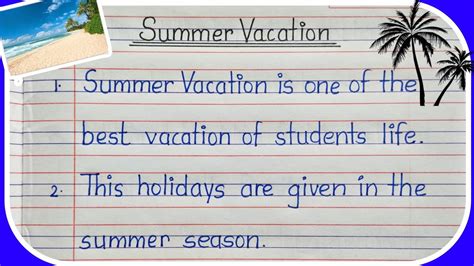 Summer Vacation
1. Summer Vacation is one of the
best vacation of students life.
2. This holidays are given in the
summer season.